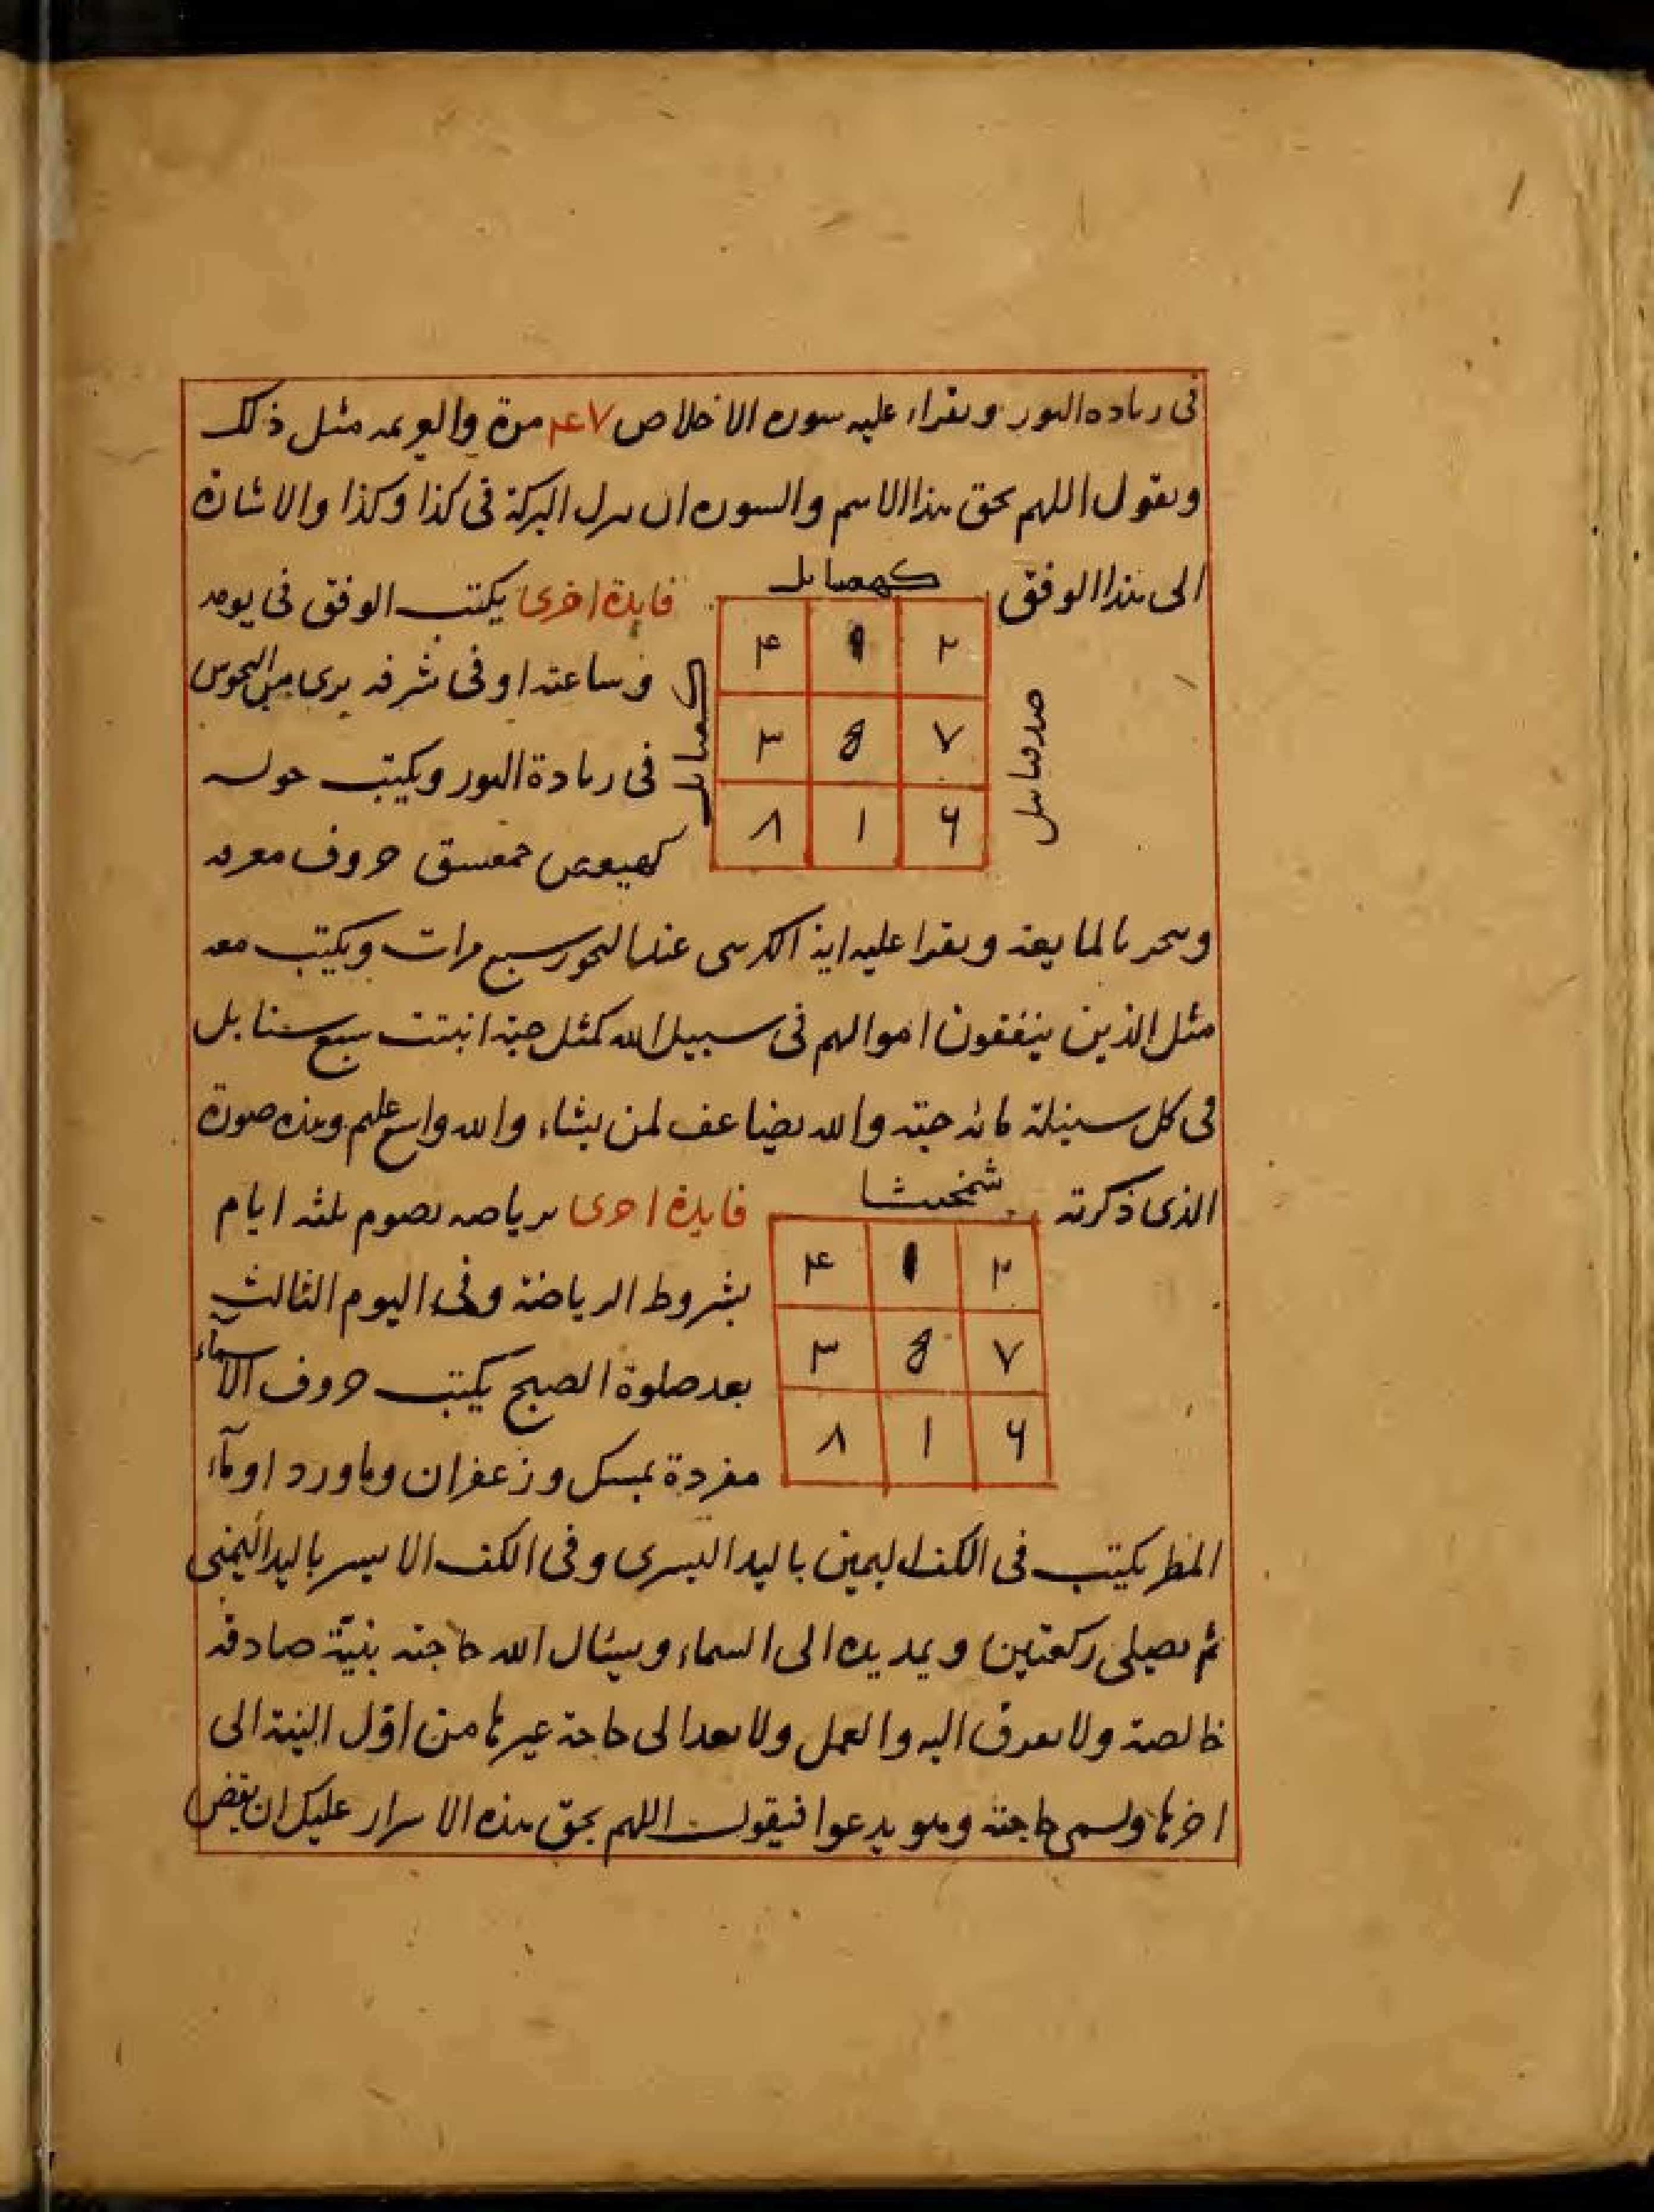 فى رىاده النور وىقراء عليه سوره الاخلاص ٤٧ مرة والعزيمه مثل ذلك
وىقول اللهم بحق هذا الاسم والسوره ان ىىرل البركة فى كذا وكذا والاشارة
الى هذا الوفق
كهصائل
صدىائىل
٢ ٩ ۴
٧ ۵ ٣
٦ ١ ٨
فايدة اخرى يكتب الوفق فى يومه
وساعته اوفى شرفه برى من النحوس
فى زيادة النور ويكتب حوله
كهيعص حمعسق حروف مفرقه
وىبخر بالمايعة وىقرا عليه اية الكرسى عند البخور سبع مرات ويكتب معه
مثل الذين ينفقون اموالهم فى سبيل الله كمثل حبة انبتت سبع سنابل
فى كل سنبلة مائة حبة والله يضاعف لمن يشاء والله واسع عليم وهذه صورة
الذى ذكرته
شمخيشا
٢ ٩ ۴
٧ ۵ ٣
٦ ١ ٨
فايدة اخرى برياضه تصوم ثلثه ايام
بشروط الرياضة وفى اليوم الثالث
بعد صلوة الصبح يكتب حروف الاسماء
مفردة بمسك وزعفران وماورد اوماء
المطر يكتب فى الكف اليمين باليد اليسرى وفى الكف الايسر باليد اليمنى
ثم يصلى ركعتين ويمد يده الى السماء ويسئال الله حاجته بنية صادقة
خالصة ولا ىعرف اليه والعمل ولا ىعدا الى حاجة غيرها من اول النية الى
اخرها ويسمى حاجته وهو يدعوا فيقول اللهم بحق هذه الاسرار عليك ان تقض